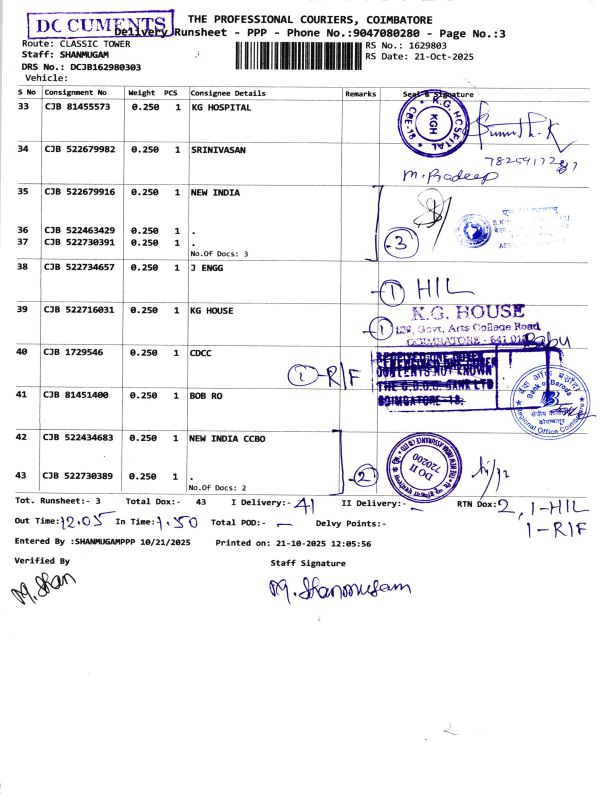 DOCUMENTS
THE PROFESSIONAL COURIERS, COIMBATORE
Delivery Runsheet - PPP - Phone No.:9047080280 - Page No.:3
Route: CLASSIC TOWER
RS No.: 1629803
Staff: SHANMUGAM
RS Date: 21-Oct-2025
DRS No.: DCJB162980303
Vehicle:
S No Consignment No Weight PCS Consignee Details Remarks Seal & Signature
33 CJB 81455573 0.250 1 KG HOSPITAL
K.G. HOSPITAL KGH CBE-18
34 CJB 522679982 0.250 1 SRINIVASAN
M. Pradeep
35 CJB 522679916 0.250 1 NEW INDIA
36 CJB 522463429 0.250 1 .
37 CJB 522730391 0.250 1 .
No.Of Docs: 3
3
38 CJB 522734657 0.250 1 J ENGG
1 HIL
39 CJB 522716031 0.250 1 KG HOUSE
K.G. HOUSE
1 129, Govt. Arts College Road
COIMBATORE - 641 018
Babu
40 CJB 1729546 0.250 1 CDCC
1 - R/F
RECEIVED ONE COVER
CONTENTS NOT KNOWN
THE C.D.C.C. BANK LTD
COIMBATORE-18.
41 CJB 81451400 0.250 1 BOB RO
बैंक ऑफ़ बड़ौदा
Bank of Baroda
क्षेत्रीय कार्यालय
कोयम्बत्तूर
Regional Office Coimbatore
42 CJB 522434683 0.250 1 NEW INDIA CCBO
DO II
720200
43 CJB 522730389 0.250 1 .
No.Of Docs: 2
2
Tot. Runsheet:- 3 Total Dox:- 43 I Delivery:- 41 II Delivery:- - RTN Dox:- 2, 1-HIL
1-R/F
Out Time:- 12.05 In Time:- 1.50 Total POD:- - Delvy Points:-
Entered By :SHANMUGAMPPP 10/21/2025 Printed on: 21-10-2025 12:05:56
Verified By
Staff Signature
M. Shan
M. Shanmugam